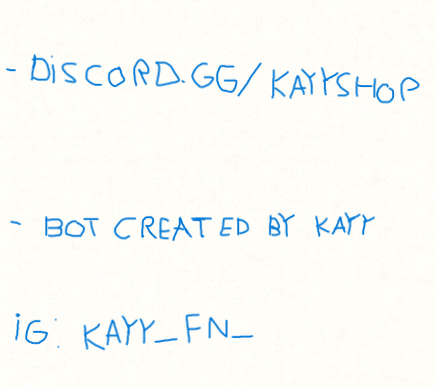 - DiSCORD.GG/KAYYSHOP
- BOT CREATED BY KAYY
iG: KAYY_FN_